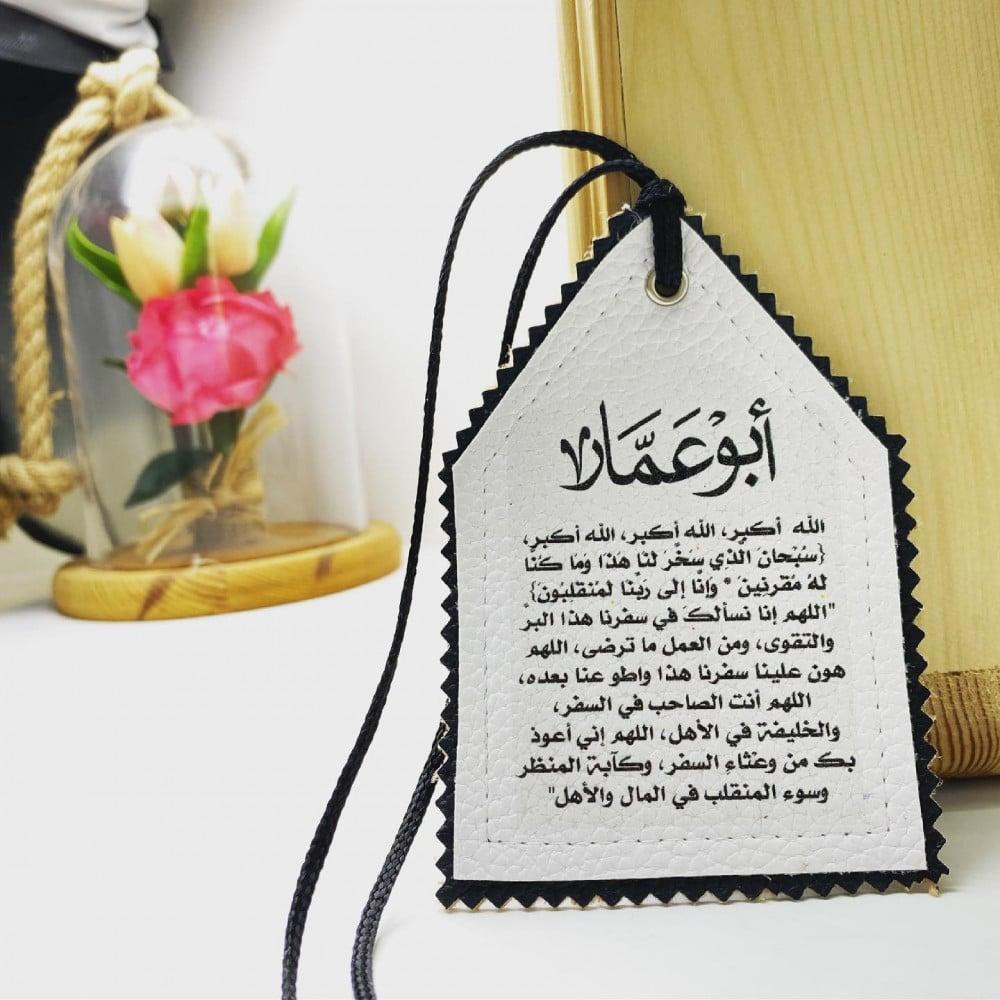 أبو عَمَّار
الله أكبر، الله أكبر، الله أكبر،
{سُبْحانَ الذي سَخَّرَ لنا هَذا وَمَا كُنا
لهُ مُقرنِينَ * وَإنَّا إلى رَبِّنَا لمُنقلِبُونَ}
"اللهم إنا نسألكَ في سفرنا هذا البرَّ
والتقوى، ومن العمل ما ترضى، اللهم
هون علينا سفرنا هذا واطو عنا بعده،
اللهم أنت الصاحب في السفر،
والخليفة في الأهل، اللهم إني أعوذ
بك من وعثاءِ السفر، وكآبة المنظر
وسوء المنقلب في المال والأهل"